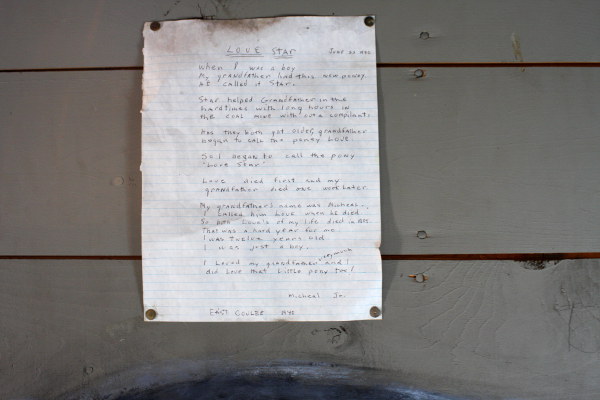 LOVE STAR
When I was a boy
My grandfather had this mine poney.
He called it Star.
Star helped Grandfather in the
hardtimes with long hours in
the coal mine with out a complaint.
As they both got older, grandfather
began to call the poney Love.
So I began to call the pony
"Love Star".
Love died first and my
grandfather died one week later.
My grandfather's name was Micheal,
I called him Love when he died.
So both Love's of my life died in
That was a hard year for me.
I was twelve years old
I was just a boy.
I loved my grandfather very much and I
did love that little pony too!
Micheal Jr.
East Coulee